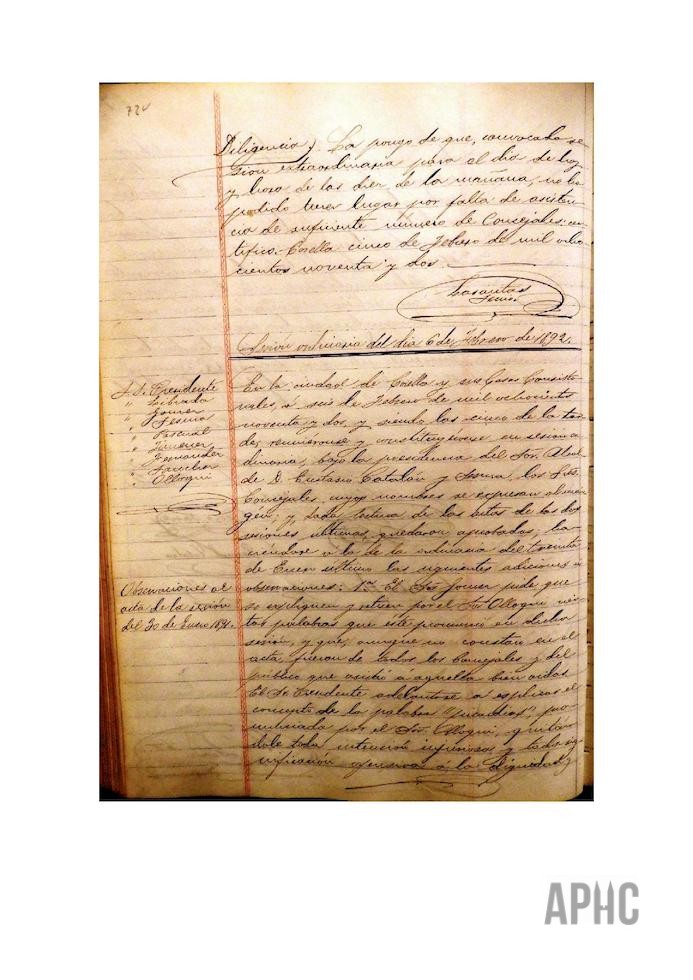 724
Diligencia) La pongo de que, convocada se-
sion extraordinaria para el dia de hoy
y hora de las diez de la mañana, no ha
podido tener lugar por falta de asisten-
cia de suficiente número de Concejales: cer-
tifico.- Coslla cinco de Febrero de mil ocho-
cientos noventa y dos.
Sesion ordinaria del dia 6 de Febrero de 1892.
S. S. Presidente
" Librada
" Jover
"
" Pascual
" Jimenez
" Fernandez
" Sanchez
" Olloqui
En la ciudad de y sus Casas Consisto-
riales, á seis de Febrero de mil ochocientos
noventa y dos, y siendo las cinco de la tar-
de, reunieronse y constituyeronse en sesion or-
dinaria, bajo la presidencia del Sor. Alcal-
de D. Eustasio Catalán y , los Sres.
Concejales, cuyos nombres se expresan al mar-
gen; y, dada lectura de las actas de las dos
sesiones últimas, quedaron aprobadas, ha-
ciéndose á la de la ordinaria del treinta
de Enero último las siguientes adiciones ú
observaciones: 1ª El Sor pide que
se expliquen y retiren por el Sor Olloqui cier-
tas palabras que este pronunció en dicha
sesión, y que, aunque no constan en el
acta, fueron de todos los Concejales y del
público que asistió a aquella bien oidas.
El Sr Presidente adelantose a explicar el
concepto de la palabra , pro-
nunciada por el Sor. Olloqui, quitán-
dole toda intencion injuriosa y toda sig-
nificación ofensiva á la dignidad y
Observaciones al
acta de la sesión
del 30 de Enero 189
APHC